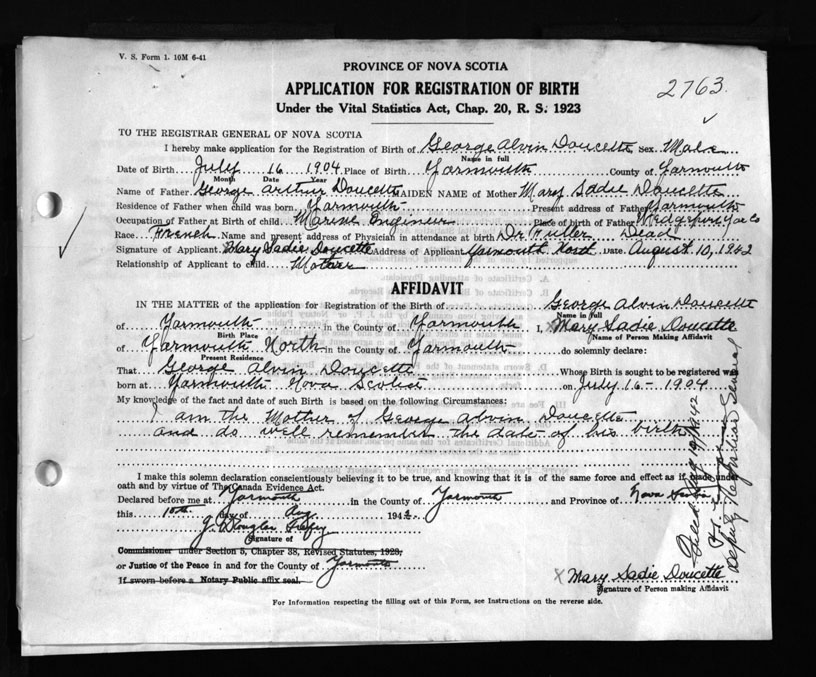 V. S. Form 1. 10M 6-41
PROVINCE OF NOVA SCOTIA
APPLICATION FOR REGISTRATION OF BIRTH
2763
Under the Vital Statistics Act, Chap. 20, R. S. 1923
TO THE REGISTRAR GENERAL OF NOVA SCOTIA
I hereby make application for the Registration of Birth of George Alvin Doucette Sex Male
Name in full
Date of Birth July 16 1904 Place of Birth Yarmouth County of Yarmouth
Month Date Year
Name of Father George Arthur Doucette MAIDEN NAME of Mother Mary Sadie Doucette
Residence of Father when child was born Yarmouth Present address of Father Yarmouth
Occupation of Father at Birth of child Marine Engineer Place of birth of Father Wedgeport Yar Co
Race French Name and present address of Physician in attendance at birth Dr Fuller Dead
Signature of Applicant Mary Sadie Doucette Address of Applicant Yarmouth North Date August 10, 1942
Relationship of Applicant to child Mother
AFFIDAVIT
IN THE MATTER of the application for Registration of the Birth of George Alvin Doucette
Name in full
of Yarmouth in the County of Yarmouth I, Mary Sadie Doucette
Birth Place Name of Person Making Affidavit
of Yarmouth North in the County of Yarmouth do solemnly declare:
Present Residence
That George Alvin Doucette Whose Birth is sought to be registered was
born at Yarmouth Nova Scotia on July 16 - 1904
My knowledge of the fact and date of such Birth is based on the following Circumstances:
I am the Mother of George Alvin Doucette
and do well remember the date of his birth
I make this solemn declaration conscientiously believing it to be true, and knowing that it is of the same force and effect as if made under
oath and by virtue of The Canada Evidence Act.
Declared before me at Yarmouth in the County of Yarmouth and Province of Nova Scotia
this 10th day of Aug 1942
J Douglas
Signature of
Commissioner under Section 5, Chapter 38, Revised Statutes, 1923,
or Justice of the Peace in and for the County of Yarmouth
If sworn before a Notary Public affix seal.
X Mary Sadie Doucette
Signature of Person making Affidavit
For Information respecting the filling out of this Form, see Instructions on the reverse side.
Filed Aug 19/1942
Deputy Registrar General